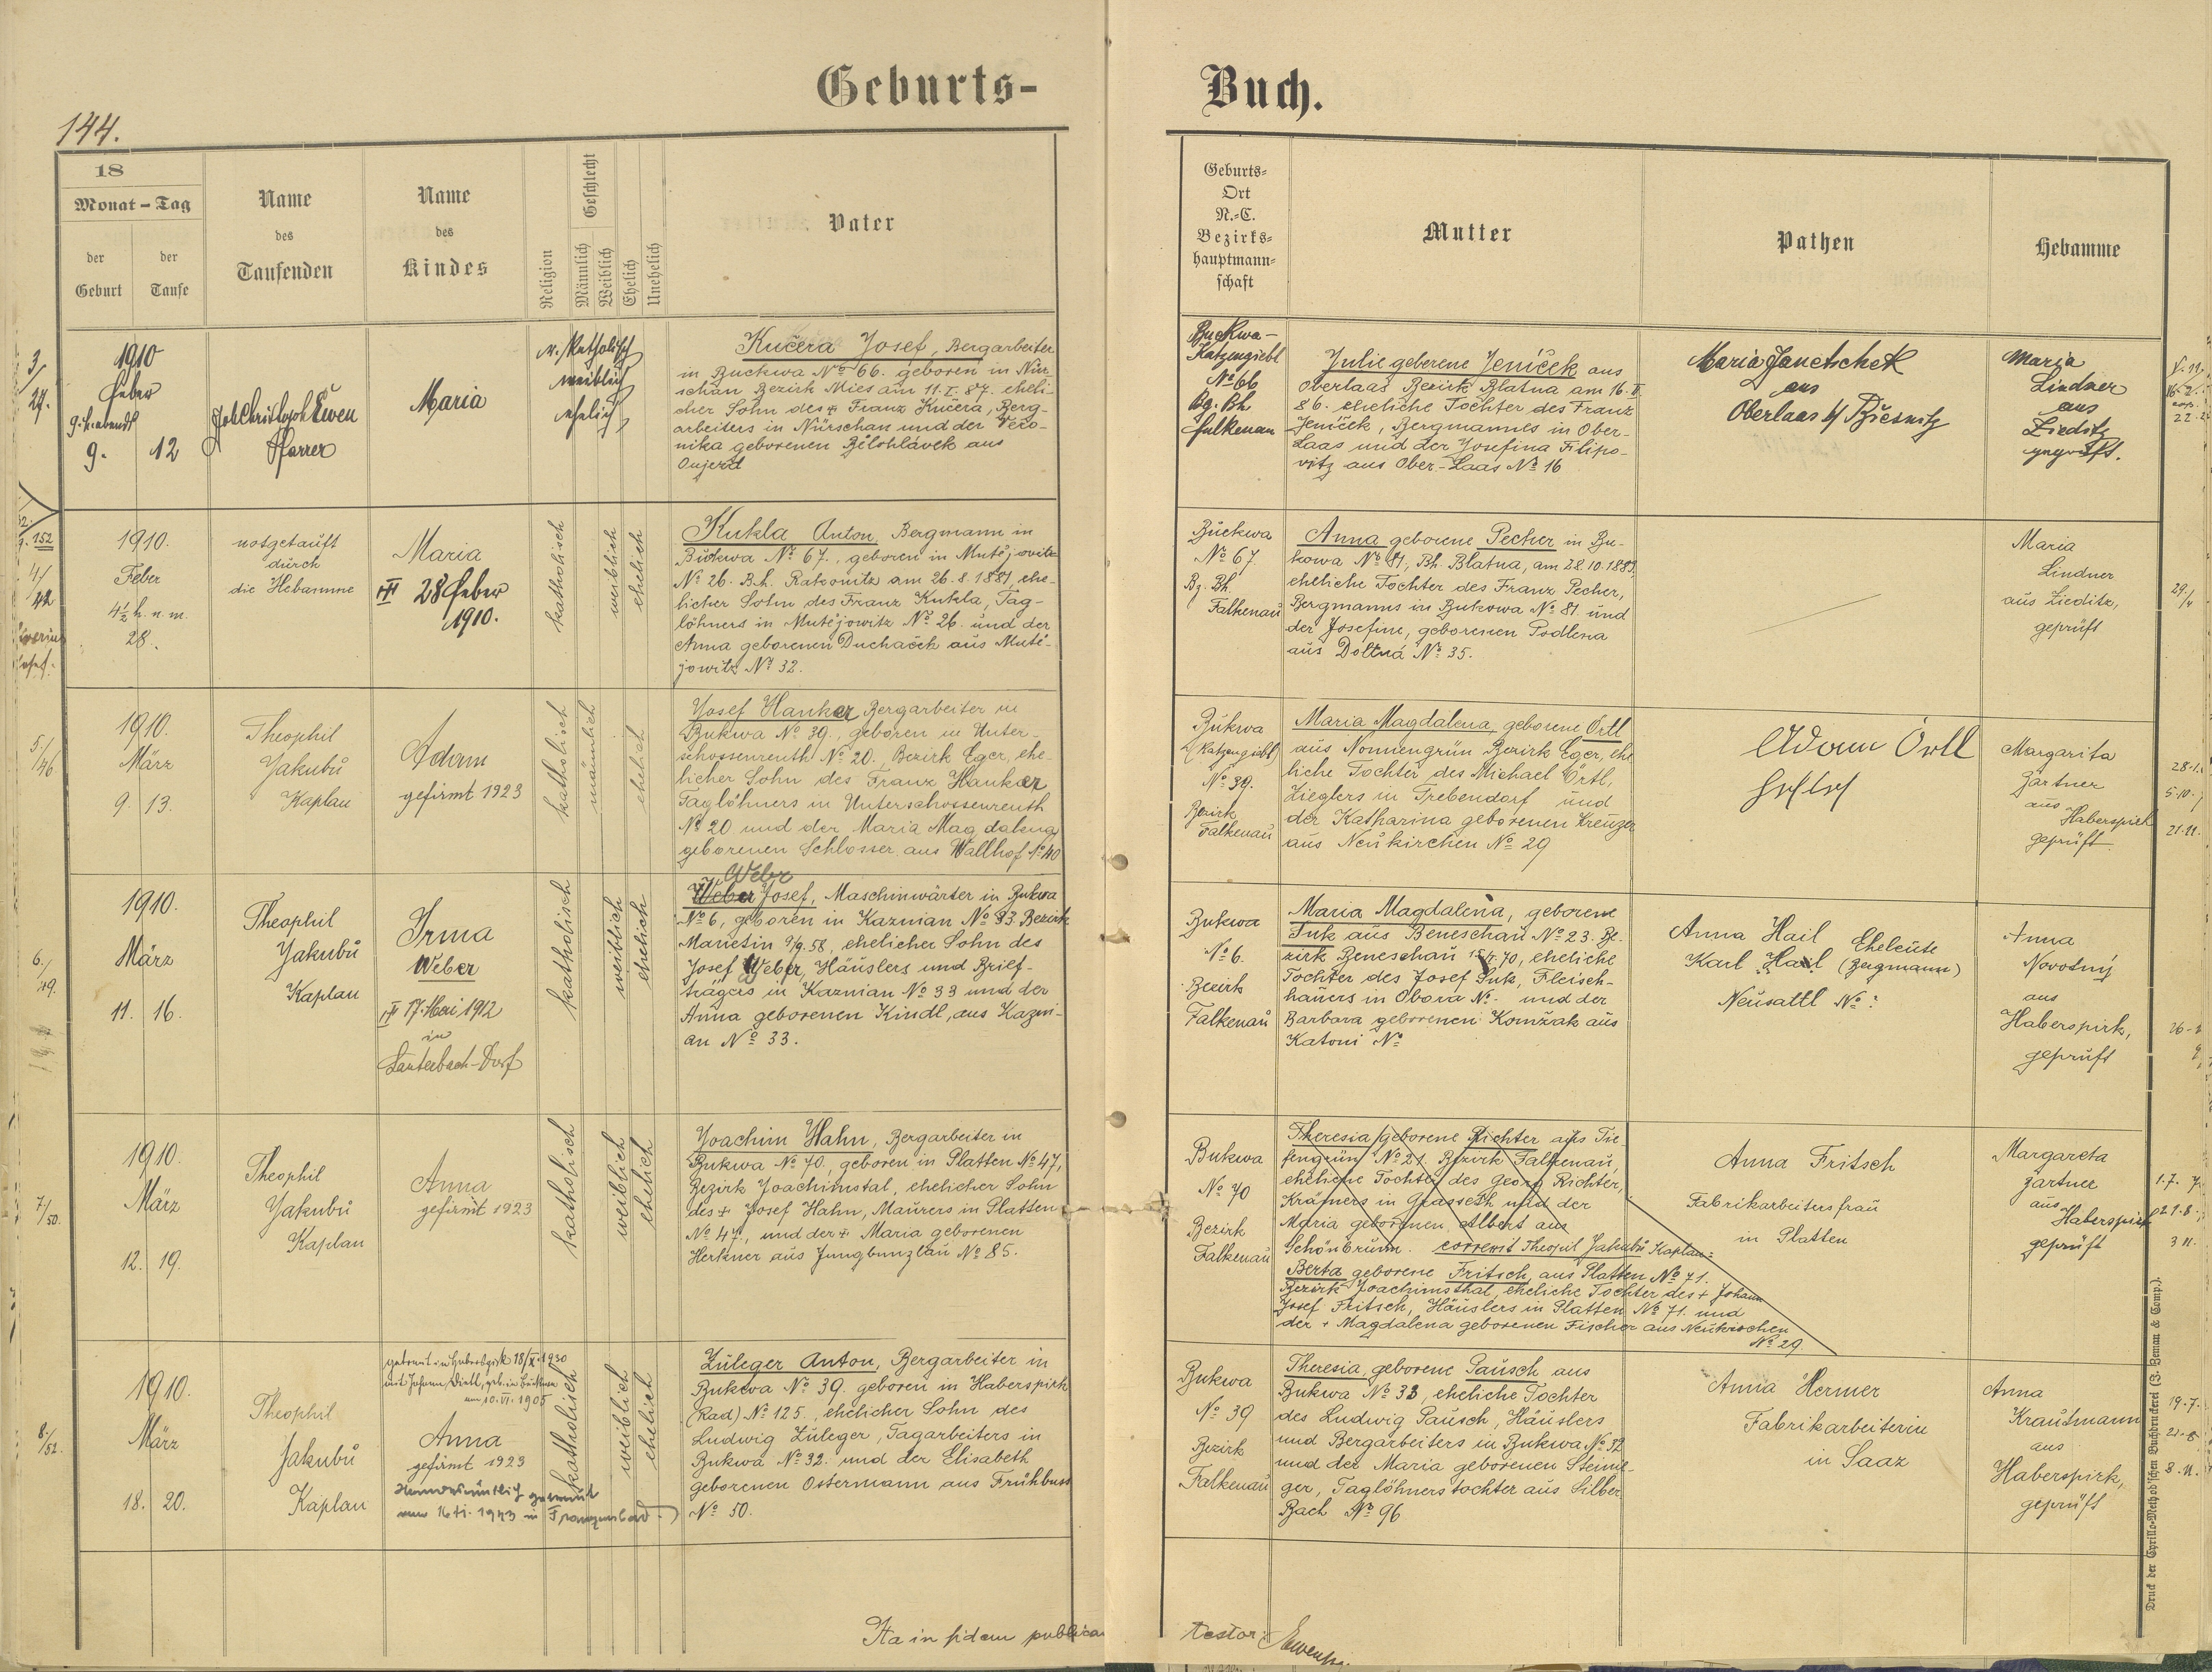 Geburts-
Buch.
144.
18
Monat - Tag
der Geburt
der Taufe
Name
des
Taufenden
Name
des
Kindes
Religion
Geschlecht
Männlich
Weiblich
Ehelich
Unehelich
Vater
Geburts-
Ort
N.-C.
Bezirks-
hauptmann-
schaft
Mutter
Pathen
Hebamme
3/
1910
Feber
9. h. abends
9.
12
Joh Christoph Ewen
Pfarrer
Maria
r./katholisch
weiblich
ehelich
Kučera Josef, Bergarbeiter
in Buckwa No 66. geboren in Nür-
schan Bezirk Mies am 11.I.87. eheli-
cher Sohn des + Franz Kučera, Berg-
arbeiters in Nürschan und der Vero-
nika geborenen Bělohlávek aus
Oujezd
Buckwa-
Katzengiebl
No 66
Bg. Bh
Falkenau
Julie geborene Jeníček aus
Oberlaas Bezirk Blatna, am 16.
86. eheliche Tochter des Franz
Jeníček, Bergmannes in Ober-
Laas und der Josefina Filipo-
vitz aus Ober-Laas No 16
Maria Janetschek
aus
Oberlaas
Maria
Lindner
aus
Zieditz
geprüft.
152
4/
42
1910.
Feber
4½ h. n. m.
28.
notgetauft
durch
die Hebamme
Maria
28 Feber
1910.
katholisch
weiblich
ehelich
Kukla Anton, Bergmann in
Buckwa No 67., geboren in Mutějowitz
No 26. B.h. Rakonitz am 26.8.1881, ehe-
licher Sohn des Franz Kukla, Tag-
löhners in Mutějowitz No 26. und der
Anna geborenen Duchaček aus Mutě-
jowitz No 32.
Buckwa
No 67.
Bz. Bh.
Falkenau
Anna geborene Pecher in Bu-
kowa No 81, Bh. Blatna, am 28.10.188
eheliche Tochter des Franz Pecher,
Bergmanns in Bukowa No 81. und
der Josefine, geborenen Podlena
aus No 35.
Maria
Lindner
aus Zieditz,
geprüft
29./4
5/46
1910.
März
9.
13.
Theophil
Jakubů
Kaplan
Adam
gefirmt 1923
katholisch
männlich
ehelich
Josef Hanker Bergarbeiter in
Bukwa No 39., geboren in Unter-
schossenreuth No 20., Bezirk Eger, ehe-
licher Sohn des Franz Hanker
Taglöhners in Unterschossenreuth
No 20 und der Maria Magdalena
geborenen Schlosser aus Wallhof No 40
Bukwa
(Katzengiebl)
No 39.
Bezirk
Falkenau
Maria Magdalena, geborene Örtl
aus Nonnengrün Bezirk Eger, ehe
liche Tochter des Michael Örtl,
Zieglers in Trebendorf und
der Katharina geborenen Kreuzer
aus Neukirchen No 29
Adam Örtl
Margarita
Gärtner
aus
Haberspirk
geprüft.
28.1.
5.10.
21.11.
6./49.
1910.
März
11.
16.
Theophil
Jakubů
Kaplan
Irma
Weber
17. Mai 1912
in
Lauterbach-Dorf
katholisch
weiblich
ehelich
Weber
Weber Josef, Maschinwärter in Bukwa
No 6, geboren in Kaznian No 33. Bezirk
Manetin 9/9.58, ehelicher Sohn des
Josef Weber, Häuslers und Brief-
trägers in Kaznian No 33 und der
Anna geborenen Kindl, aus Kazni-
an No 33.
Bukwa
No 6.
Bezirk
Falkenau
Maria Magdalena, geborene
Suk aus Beneschau No 23. Be-
zirk Beneschau 70, eheliche
Tochter des Josef Suk, Fleisch-
hauers in Obora No. und der
Barbara geborenen Komžak aus
Katoni No
Anna Hail
Karl Hail
Eheleute
(Bergmann)
Neusattl No ?
Anna
Novotný
aus
Haberspirk,
geprüft
7/50.
1910.
März
12.
19.
Theophil
Jakubů
Kaplan
Anna
gefirmt 1923
katholisch
weiblich
ehelich
Joachim Hahn, Bergarbeiter in
Bukwa No 70., geboren in Platten No 47,
Bezirk Joachimstal, ehelicher Sohn
des + Josef Hahn, Maurers in Platten
No 47, und der + Maria geborenen
Herkner aus Jungbunzlau No 85.
Bukwa
No 70
Bezirk
Falkenau
Theresia geborene Richter aus Tie-
fengrün No 21. Bezirk Falkenau,
eheliche Tochter des Georg Richter,
Krämers in Grasseth und der
Maria geborenen Albert aus
Schönbrunn. correxit Theopil Jakubů Kaplan:
Berta geborene Fritsch, aus Platten No 71.
Bezirk Joachimsthal, eheliche Tochter des + Johann
Josef Fritsch, Häuslers in Platten No 71. und
der + Magdalena geborenen Fischer aus Neukirchen
No 29.
Anna Fritsch
Fabrikarbeitersfrau
in Platten
Margareta
Gärtner
aus
Haberspirk
geprüft
8/52.
1910.
März
18.
20.
Theophil
Jakubů
Kaplan
getraut in Haberspirk 18/X.1930
mit Johann Dietl, geb. in Buckwa
am 10.VI.1905
Anna
gefirmt 1923
Standesamtlich getraut
am 16.11.1943 in Franzensbad
katholisch
weiblich
ehelich
Züleger Anton, Bergarbeiter in
Bukwa No 39. geboren in Haberspirk
(Rad) No 125., ehelicher Sohn des
Ludwig Züleger, Tagarbeiters in
Bukwa No 32. und der Elisabeth
geborenen Ostermann aus Frühbuss
No 50.
Bukwa
No 39
Bezirk
Falkenau
Theresia, geborene Pausch aus
Bukwa No 33, eheliche Tochter
des Ludwig Pausch, Häuslers
und Bergarbeiters in Bukwa No 32
und der Maria geborenen Steini-
ger, Taglöhnerstochter aus Silber
Bach No 96
Anna Hermer
Fabrikarbeiterin
in Saaz
Anna
Krautmann
aus
Haberspirk,
geprüft
19.7.
3.11.
Ita in fidem publicam
testor:
Druck der Cyrillo-Method'schen Buchdruckerei (J. Zeman & Comp.).